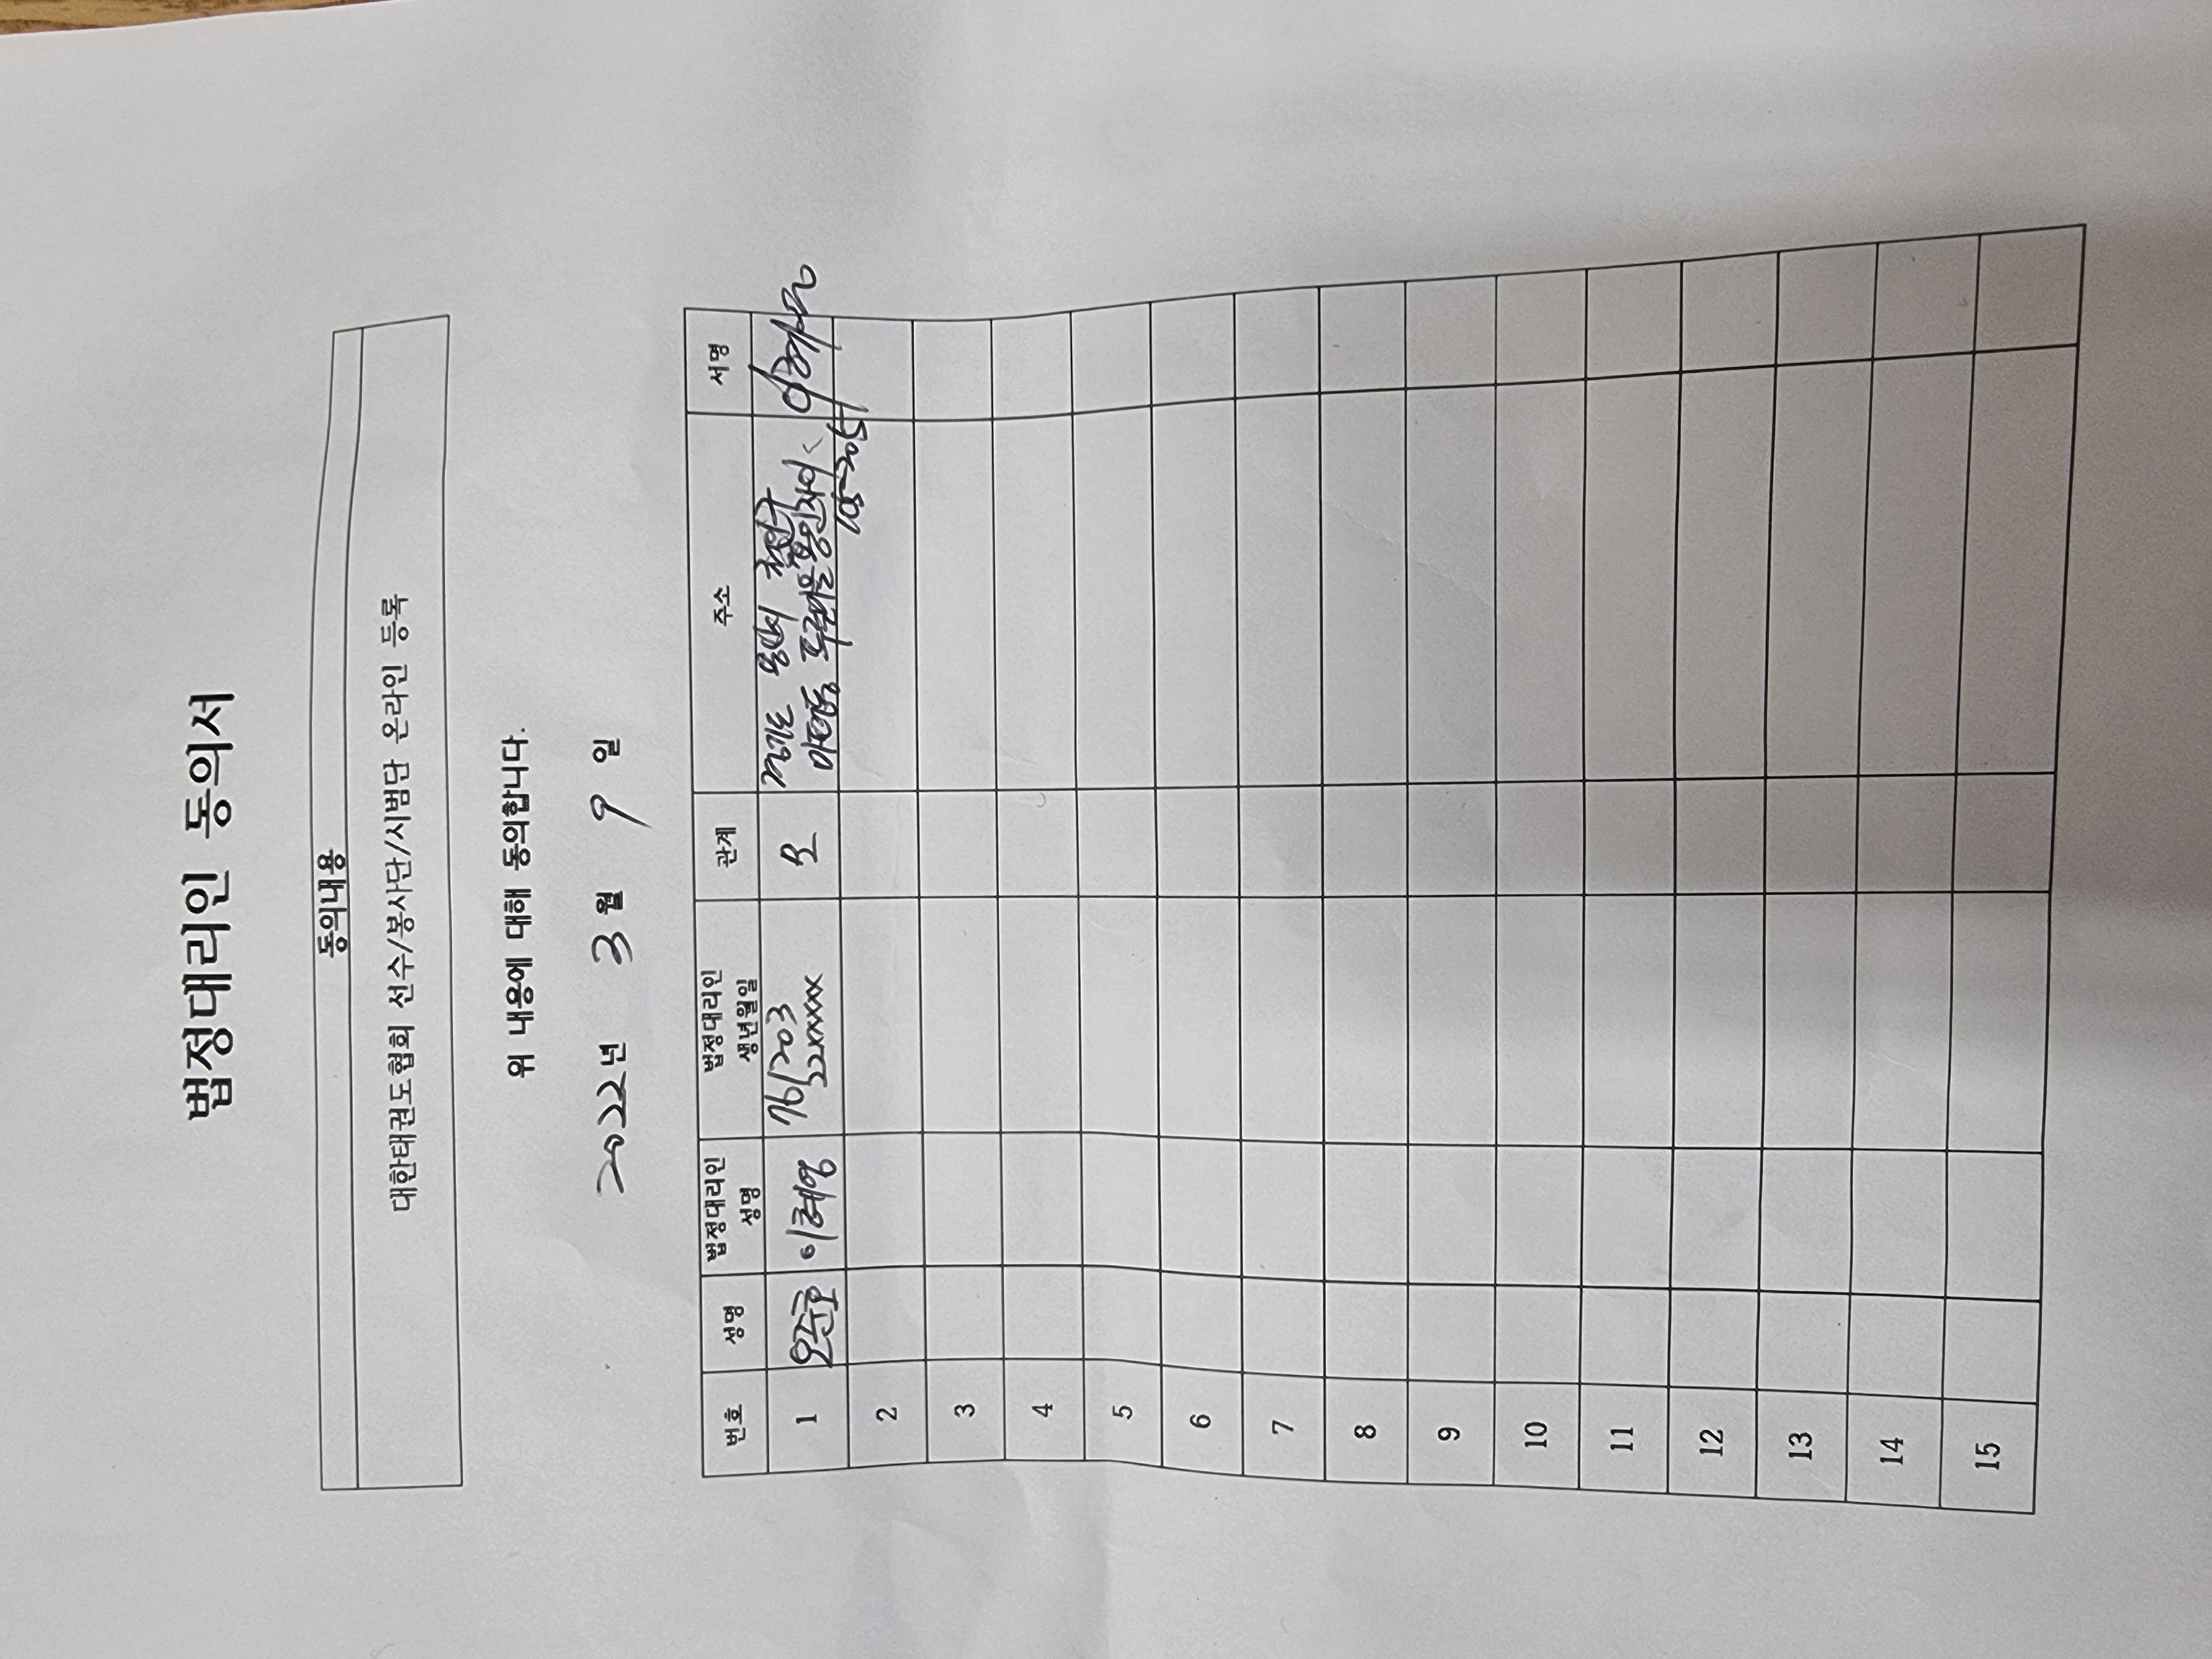 법정대리인 동의서
동의내용
대한태권도협회 선수/봉사단/시범단 온라인 등록
위 내용에 대해 동의합니다.
2022년 3월 9일
번호 성명 법정대리인 성명 법정대리인 생년월일 관계 주소 서명
1 761203 모 경기도 용인시 처인구
22xxxxx
105-205
2
3
4
5
6
7
8
9
10
11
12
13
14
15